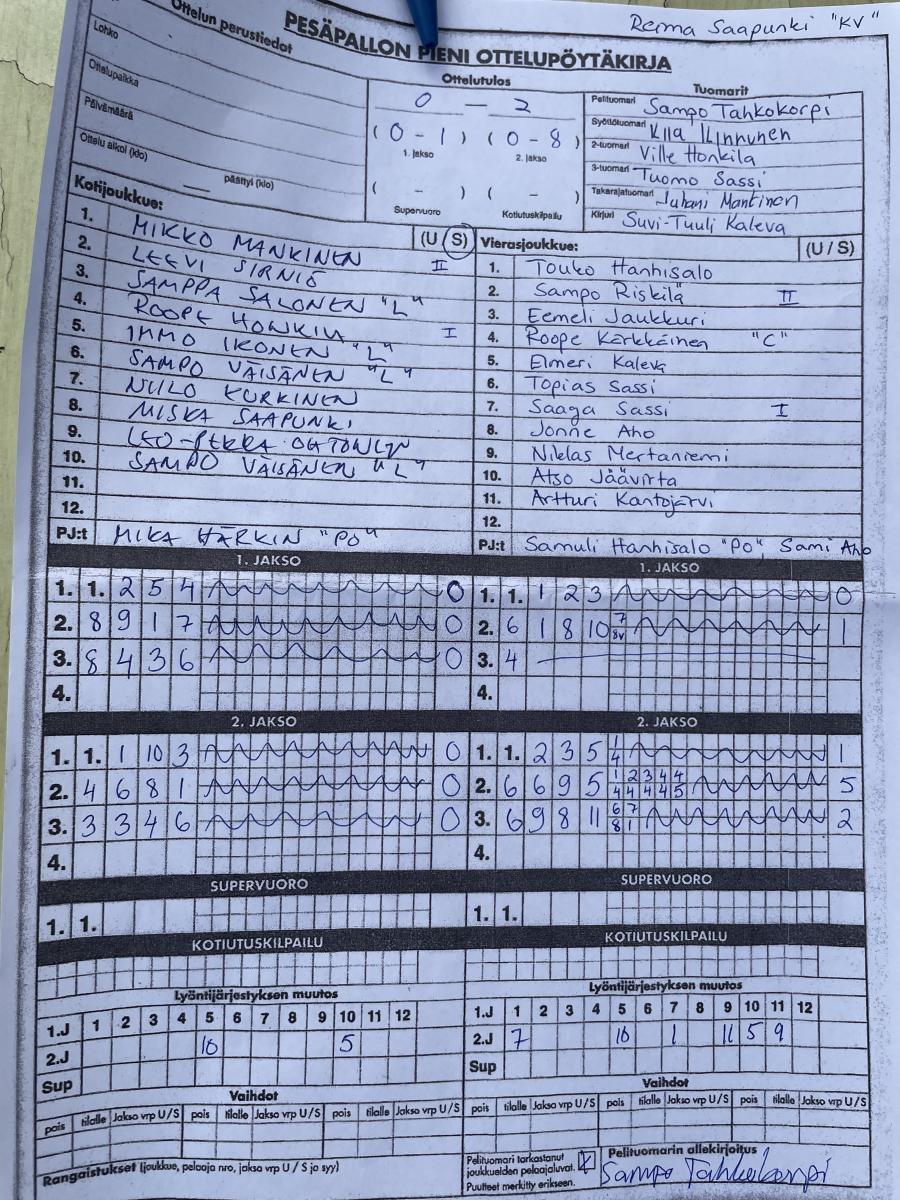 Reima Saapunki "KV"
PESÄPALLON PIENI OTTELUPÖYTÄKIRJA
Ottelun perustiedot
Lohko
Ottelupaikka
Päivämäärä
Ottelu alkoi (klo) päättyi (klo)
Ottelutulos
0 — 2
(0 - 1) (0 - 8)
1. jakso 2. jakso
( - ) ( - )
Supervuoro Kotiutuskilpailu
Tuomarit
Pelituomari Sampo Tahkokorpi
Syöttötuomari Kinnunen
2-tuomari Ville Honkila
3-tuomari Tuomo Sassi
Takarajatuomari Juhani Mantinen
Kirjuri Suvi-Tuuli Kaleva
Kotijoukkue: (U S)
1. MIKKO MANKINEN
2. LEEVI SIRNIÖ II
3. SAMPPA SALONEN "L"
4. ROOPE I
5. IMMO IKONEN "L"
6. SAMPO VÄISÄNEN "L"
7. NIILO KURKINEN
8. MISKA SAAPUNKI
9. LEO-PEKKA
10. SAMPO VÄISÄNEN "L"
11.
12.
PJ:t MIKA HÄRKIN "PO"
Vierasjoukkue: (U / S)
1. Touko Hanhisalo
2. Sampo Riskilä II
3. Eemeli Jaukkuri
4. Roope Kärkkäinen "C"
5. Elmeri Kaleva
6. Topias Sassi
7. Saaga Sassi I
8. Jonne Aho
9. Niklas Mertaniemi
10. Atso Jäävirta
11. Artturi Kantojärvi
12.
PJ:t Samuli Hanhisalo "PO", Sami Aho
1. JAKSO
1. 1. 2 5 4 0
2. 8 9 1 7 0
3. 8 4 3 6 0
4.
1. JAKSO
1. 1. 1 2 3 0
2. 6 1 8 10 7 8v 1
3. 4
4.
2. JAKSO
1. 1. 1 10 3 0
2. 4 6 8 1 0
3. 3 3 4 6 0
4.
2. JAKSO
1. 1. 2 3 5 1 4 1
2. 6 6 9 5 1 2 3 4 4 5
4 4 4 4 5
3. 6 9 8 11 6 7 2
8 1
4.
SUPERVUORO
1. 1.
SUPERVUORO
1. 1.
KOTIUTUSKILPAILU
KOTIUTUSKILPAILU
Lyöntijärjestyksen muutos
1.J 1 2 3 4 5 6 7 8 9 10 11 12
2.J 10 5
Sup
Lyöntijärjestyksen muutos
1.J 1 2 3 4 5 6 7 8 9 10 11 12
2.J 7 10 1 11 5 9
Sup
Vaihdot
pois tilalle Jakso vrp U/S pois tilalle Jakso vrp U/S pois tilalle Jakso vrp U/S
Vaihdot
pois tilalle Jakso vrp U/S pois tilalle Jakso vrp U/S pois tilalle Jakso vrp U/S
Rangaistukset (joukkue, pelaaja nro, jakso vrp U / S ja syy)
Pelituomari tarkastanut
joukkueiden pelaajaluvat.
Puutteet merkitty erikseen.
Pelituomarin allekirjoitus
Sampo Tahkokorpi